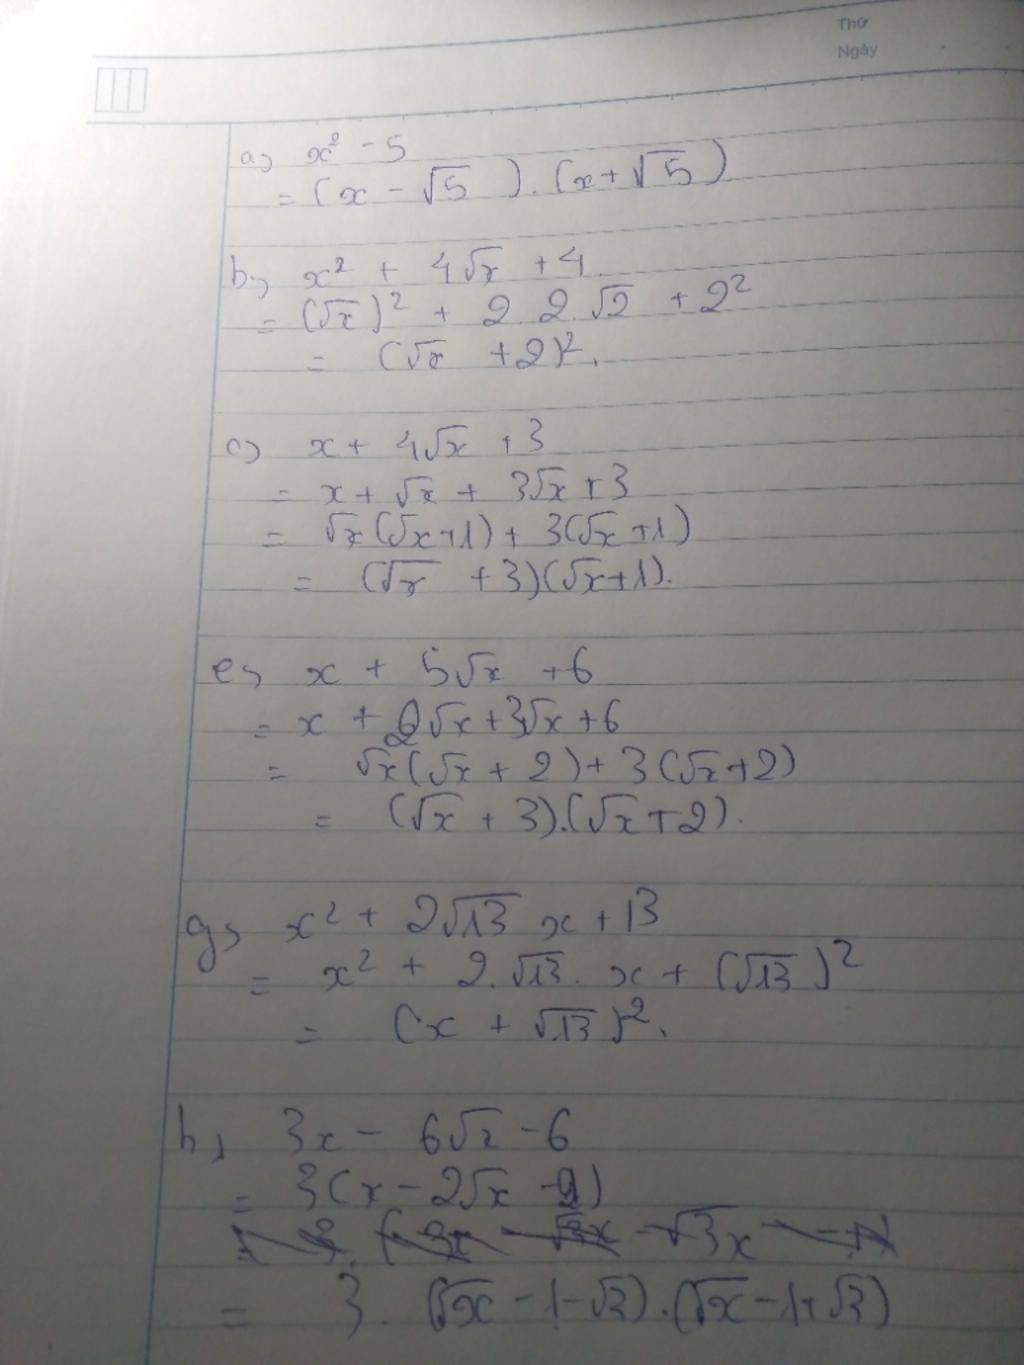 Thứ
Ngày
a, x² - 5
= (x - √5).(x + √5)
b, x² + 4√x + 4
= (√x)² + 2.2.√2 + 2²
= (√x + 2)².
c, x + 4√x + 3
= x + √x + 3√x + 3
= √x(√x+1) + 3(√x+1)
= (√x + 3)(√x+1).
e, x + 5√x + 6
= x + 2√x + 3√x + 6
= √x(√x + 2) + 3(√x+2)
= (√x + 3).(√x+2).
g, x² + 2√13 x + 13
= x² + 2.√13. x + (√13)²
= (x + √13)².
h, 3x - 6√x - 6
= 3(x - 2√x - 2)
= 3. (√x - 1 - √3).(√x - 1 + √3)